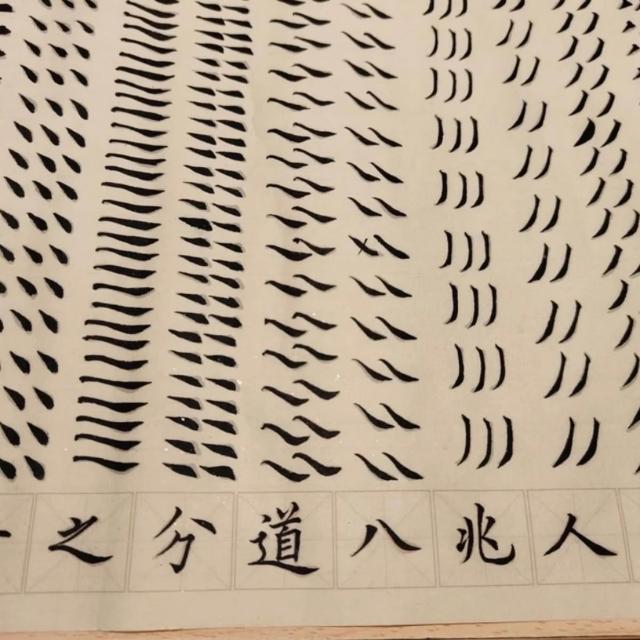 之分道八兆人